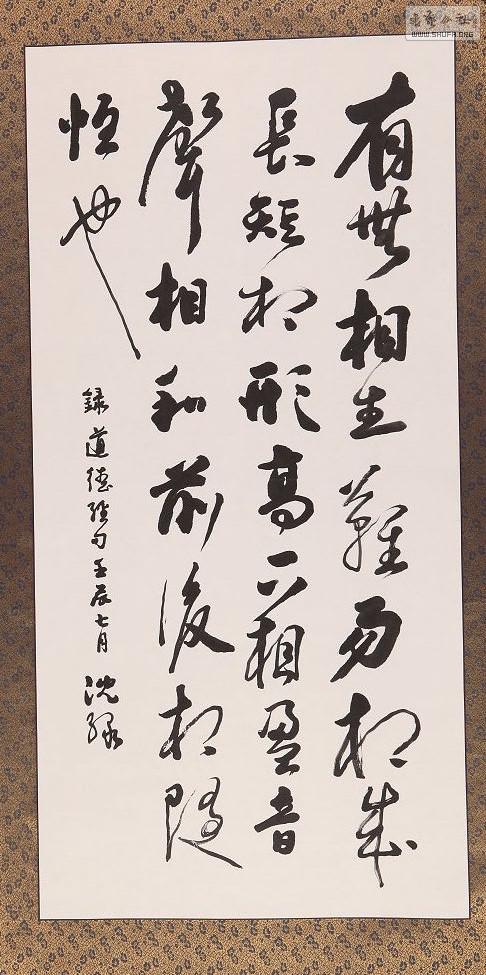 有無相生難易相成
長短相形高下相盈音
聲相和前後相隨
恒也
録道德經句壬辰七月 沈
WWW.SHUFA.ORG